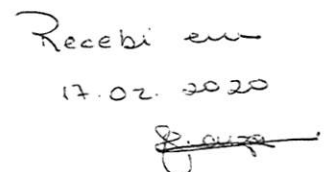 Recebi em
17.02.2020